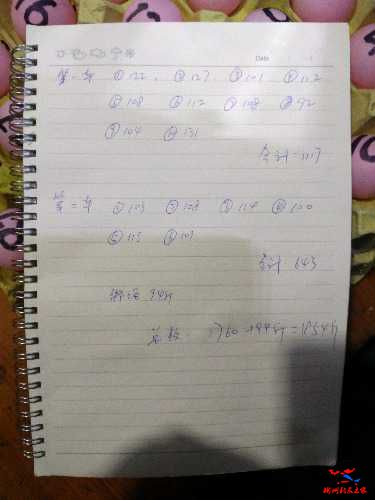 Date
第一车 ①122. ②127. ③101 ④112
⑤108 ⑥112 ⑦108 ⑧92
⑨104 ⑩131
合计:1117
第二车 ①103 ②108 ③114 ④100
⑤115 ⑥103
合计 643
94斤
总数: 1760+94斤=1854斤